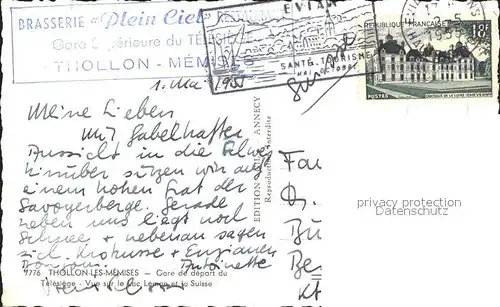 BRASSERIE "Plein Ciel" RESTAURANT
Gare Supérieure du TÉLÉSIÈGE
THOLLON - MÉMISES
EVIAN
SANTÉ. TOURISME
MAI OCTOBRE
RÉPUBLIQUE FRANÇAISE 18F
POSTES CHATEAUX DE LA LOIRE (CHEVERNY)
1955
1. Mai 1955
Meine Lieben
Mit fabelhafter
Aussicht in die Schweiz
hinüber sitzen wir auf
einem hohen Grat der
Savoyerberge. Gerade
neben uns liegt noch
Schnee + nebenan sagen
sich Krokusse + Enzianen
Bonjour. Antoinette
EDITION ANNECY
Reproduction interdite
7776 THOLLON-LES-MÉMISES - Gare de départ du
Télésiège - Vue sur le Lac Léman et la Suisse
Fa
Bü
Be
privacy protection
Datenschutz